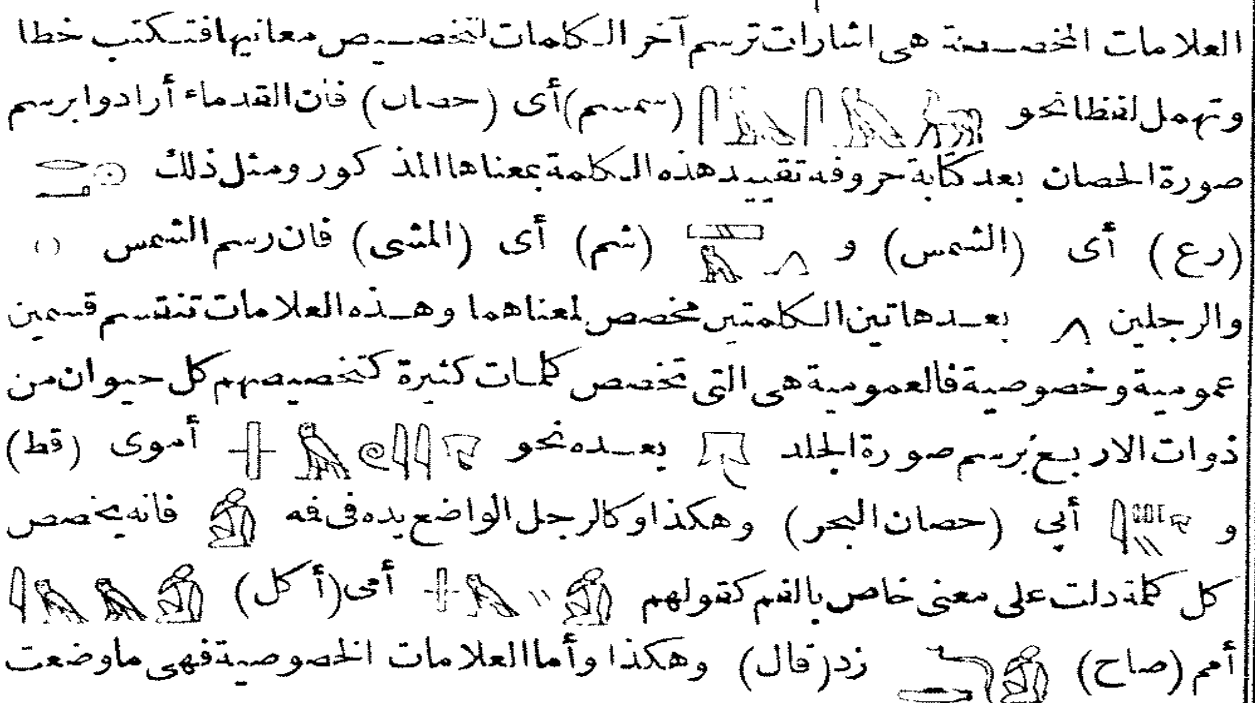 العلامات المخصصة هى اشارات ترسم آخر الكلمات لتخصيص معانيها فتكتب خطا
وتهمل لفظا نحو (سمسم) أى (حصان) فان القدماء أرادوا برسم
صورة الحصان بعد كتابة حروفه تقييد هذه الكلمة بمعناها المذكور ومثل ذلك
(رع) أى (الشمس) و (شم) أى (المشى) فان رسم الشمس
والرجلين بعدهاتين الكلمتين مخصص لمعناهما وهذه العلامات تنقسم قسمين
عمومية وخصوصية فالعمومية هى التى تخصص كلمات كثيرة كتخصيصهم كل حيوان من
ذوات الاربع برسم صورة الجلد بعده نحو أموى (قط)
و أبي (حصان البحر) وهكذا وكالرجل الواضع يده فى فه فانه يخصص
كل كلمة دلت على معنى خاص بالفم كقولهم أمى (أكل)
أمم (صاح) زد (قال) وهكذا وأما العلامات الخصوصية فهى ماوضعت